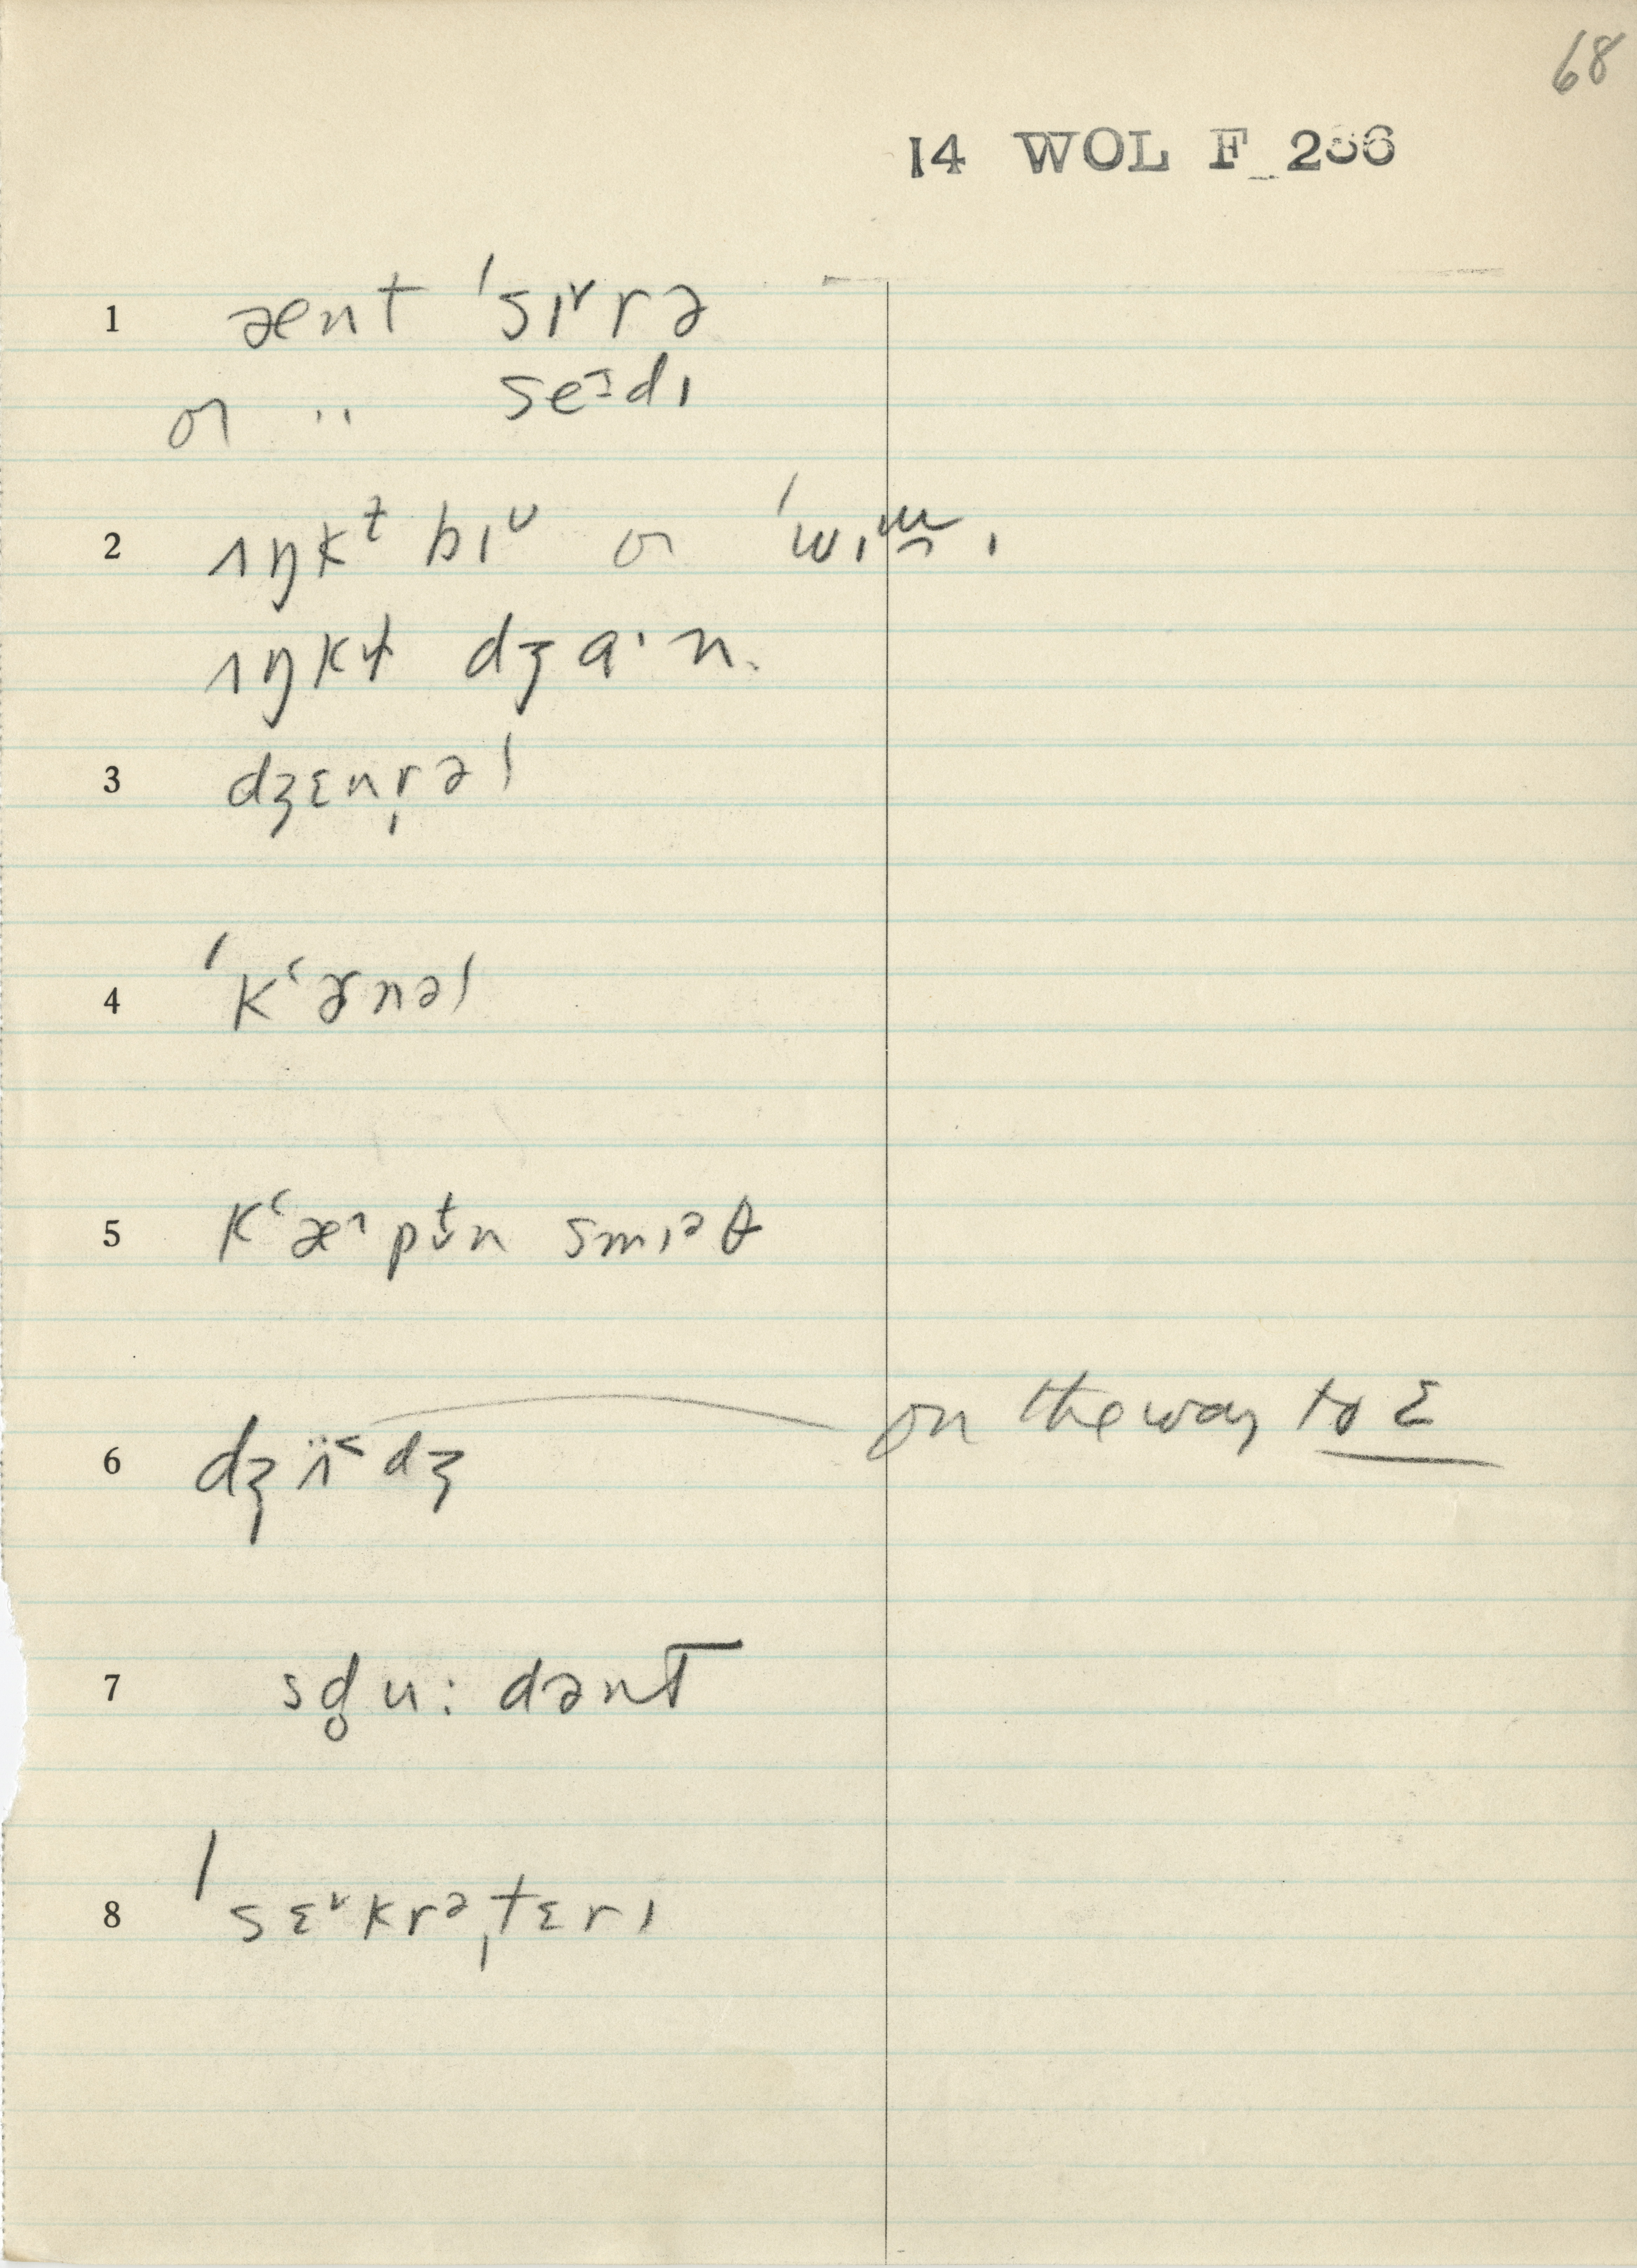 68
14 WOL F 2
1 ænt ˈsɪ˅rə
or " seᵊdɪ
2 ɪŋkɫ bɪᵛ or
ɪŋkɫ dʒɑ·n.
3 dʒɛnr̩əl
4 ˈkʿɚnəl
5 kʿæ^pt̬n smɪᵊθ
6 dʒɪ̈˂dʒ on the way to ɛ
7 sd̥u:dənt
8 ˈsɛ˅krəˌtɛrɪ